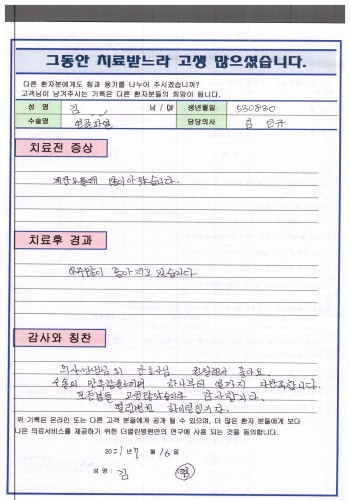 그동안 치료받느라 고생 많으셨습니다.
다른 환자분에게도 힘과 용기를 나누어 주시겠습니까?
고객님이 남겨주시는 기록은 다른 환자분들의 희망이 됩니다.
성 명 김 남 / 여 생년월일 530830
수술명 인공관절 담당의사 김
치료전 증상
계단오를때 많이아팠습니다.
치료후 경과
아주많이 좋아지고 있습니다
감사와 칭찬
의사선생님외 간호사님 친절해서 좋다요.
수술의 만족함을느끼며 하나부터 열가지 다만족합니다.
모든분들 고맙맙습니다 감사합니다.
열린병원 화이팅입니다.
위 기록은 온라인 또는 다른 고객 분들에게 공개 될 수 있으며, 더 많은 환자 분들에게 보다
나은 의료서비스를 제공하기 위한 더열린병원만의 연구에 사용 되는 것을 동의합니다.
2021년 7 월 16 일
성 명 : 김